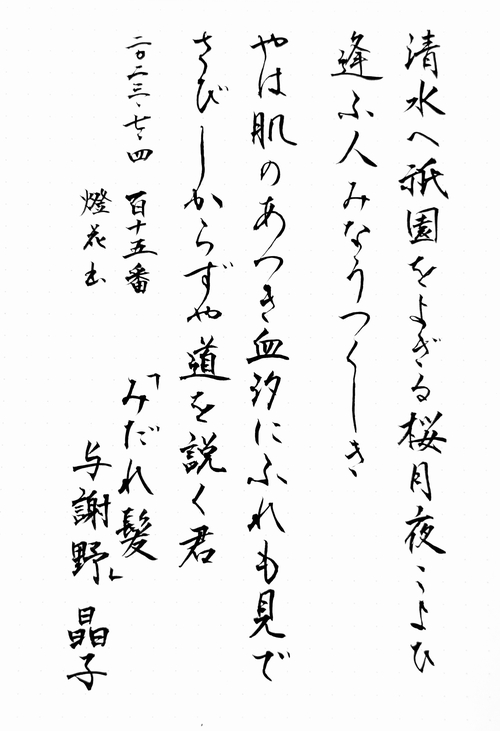 清水へ祇園をよぎる桜月夜こよひ
逢ふ人みなうつくしき
やは肌のあつき血汐にふれも見で
さびしからずや道を説く君
「みだれ髪」
与謝野 晶子
二〇二三、七、四
百十五番
燈花